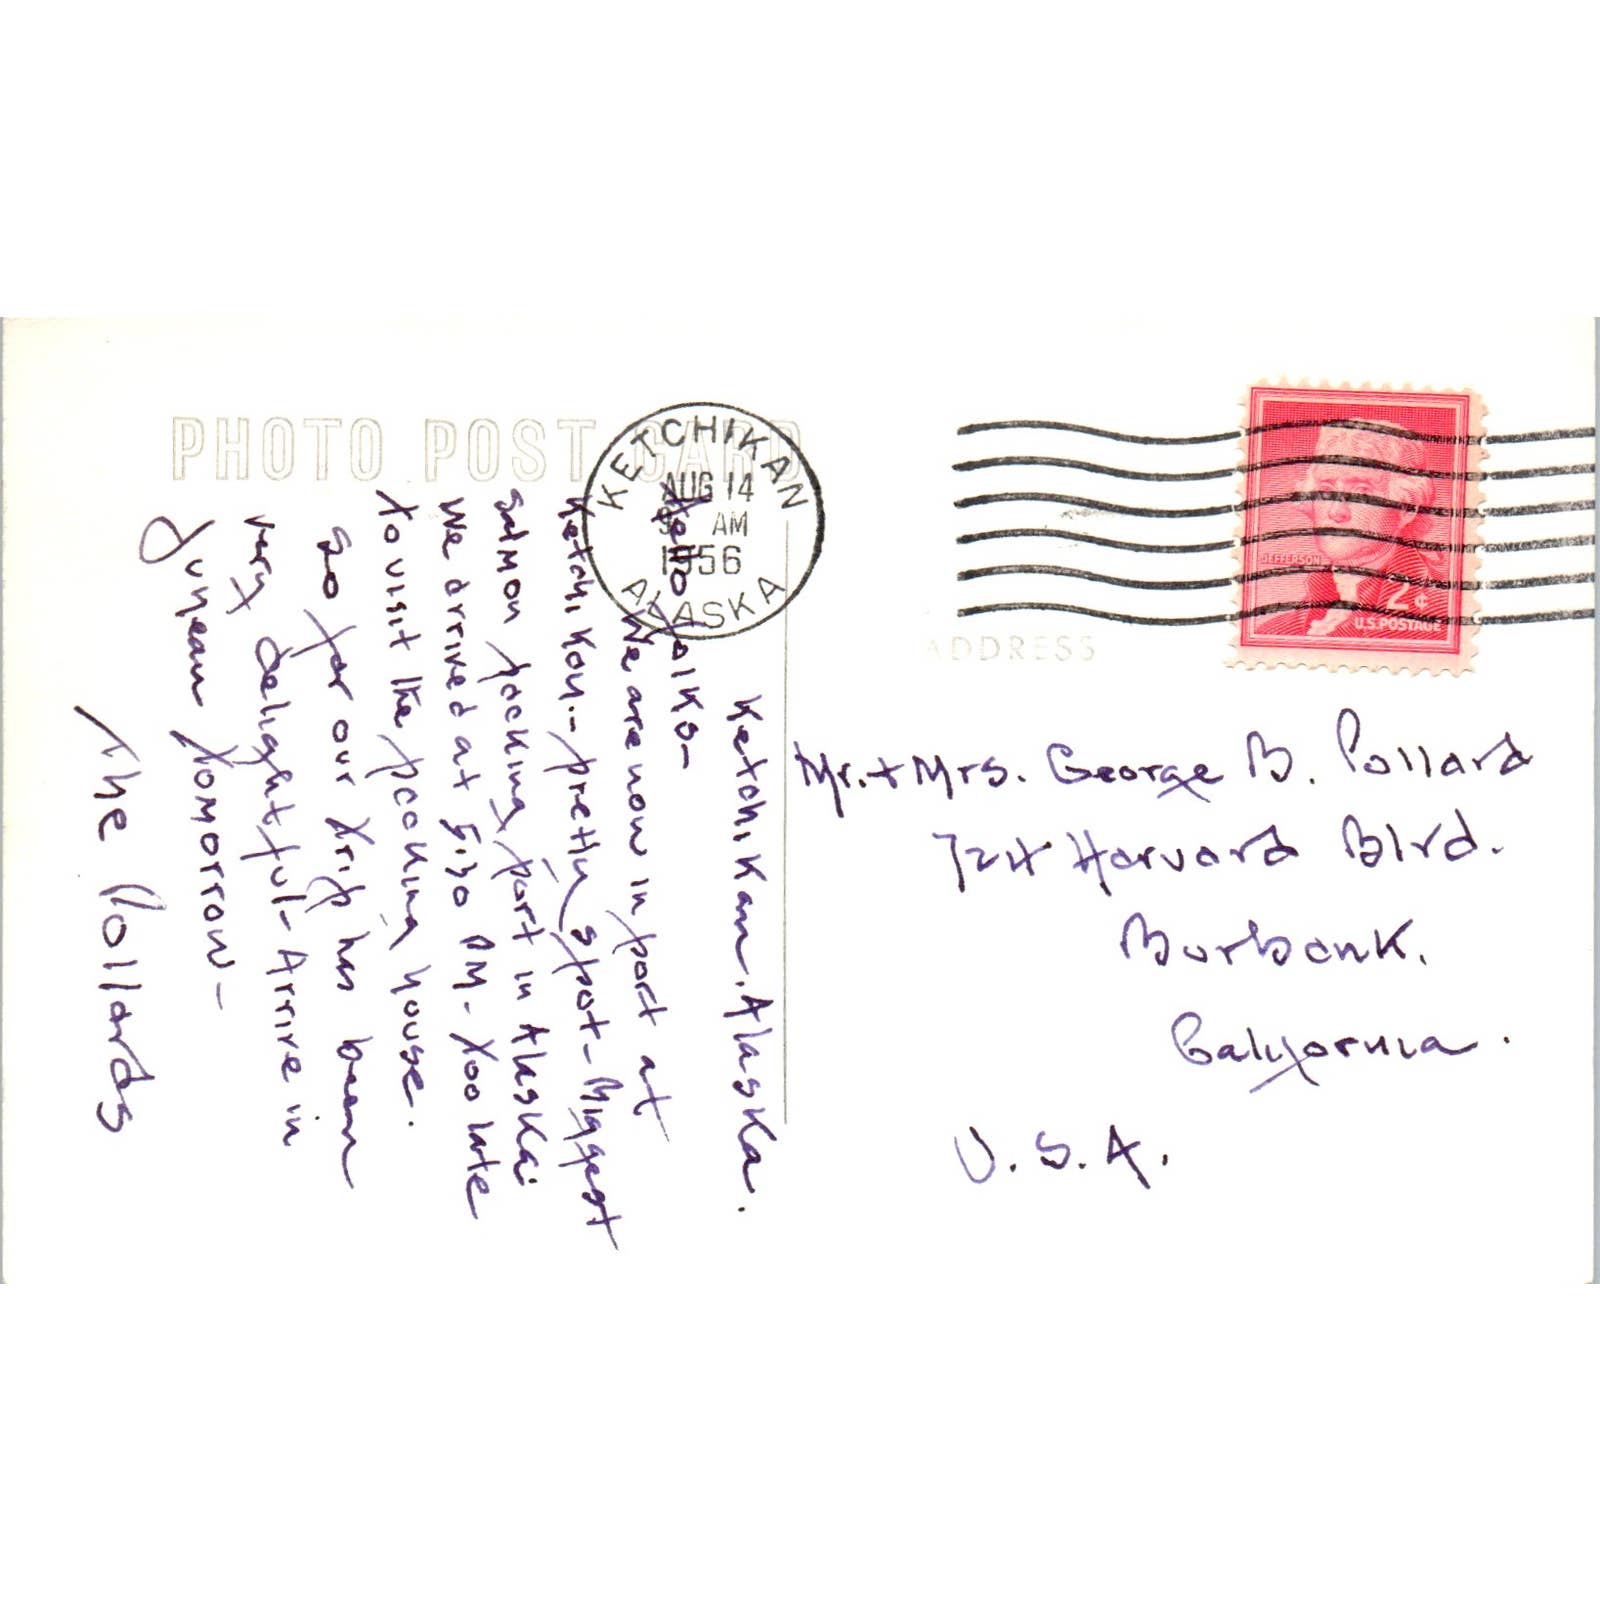 PHOTO POST CARD
KETCHIKAN
AUG 14
AM
1956
ALASKA
Ketchikan, Alaska.
Hello Folks-
We are now in port at
Ketchikan.- pretty spot- Biggest
salmon packing port in Alaska.
We arrived at 5:30 PM- too late
to visit the packing house.
So far our trip has been
very delightful- Arrive in
Juneau tomorrow-
The Pollards
JEFFERSON
2¢
U.S.POSTAGE
ADDRESS
Mr. + Mrs. George B. Pollard
724 Harvard Blvd.
Burbank.
California.
U.S.A.